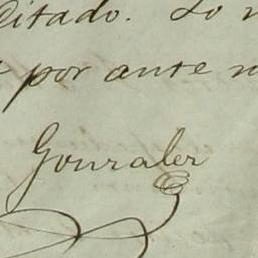 ditado. Lo
por ante
Gonzalez